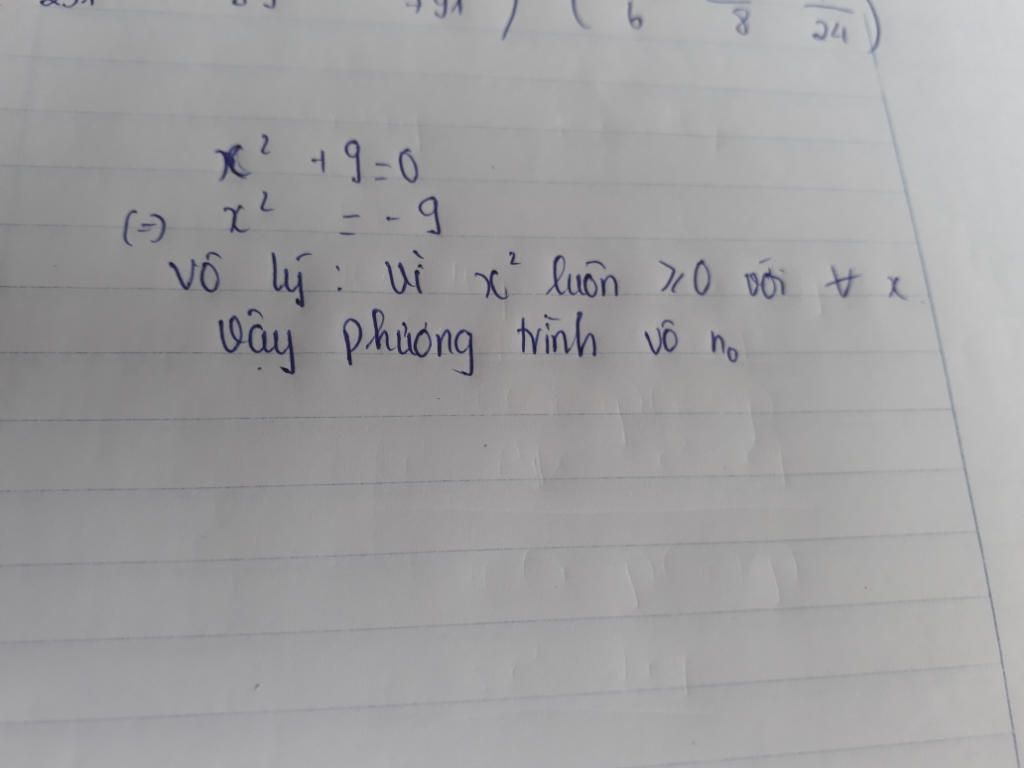 6 8 24 )
x² + 9 = 0
(=) x² = - 9
Vô lý : vì x² luôn ⩾ 0 với ∀ x
Vậy phương trình vô n₀